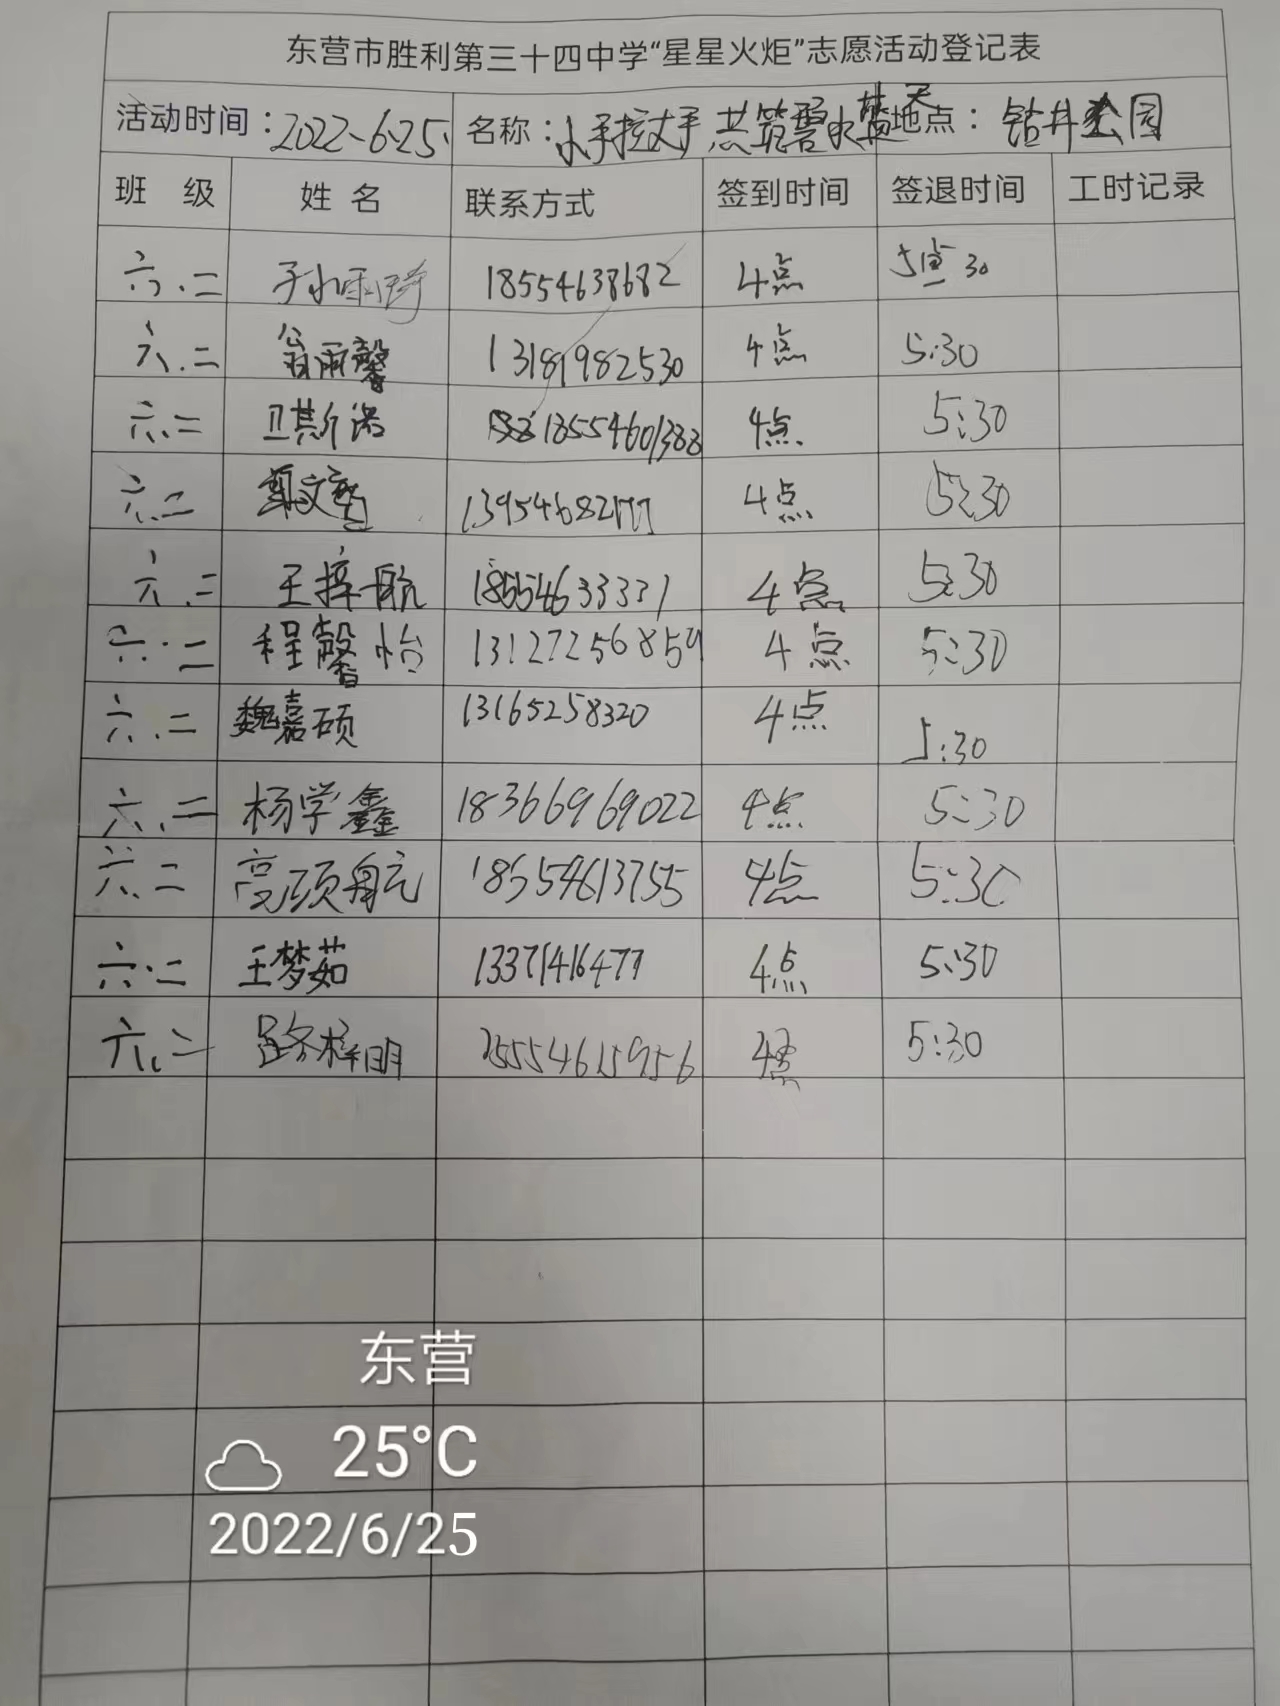 东营市胜利第三十四中学“星星火炬”志愿活动登记表
活动时间：2022-6-25. 名称：小手拉大手 共筑碧水蓝天 地点：钻井公园
班 级 姓 名 联系方式 签到时间 签退时间 工时记录
六.二 18554638682 4点 5点30
六.二 翁雨馨 13181982530 4点 5:30
六.二 卫斯诺 18554601388 4点 5:30
六.二 13954682177 4点 5:30
六.二 王梓航 18554633331 4点 5:30
六.二 程馨怡 13127256859 4点 5:30
六.二 魏嘉硕 13165258320 4点 5:30
六.二 杨学鑫 18366969022 4点 5:30
六.二 高硕航 18654613755 4点 5:30
六.二 王梦茹 13371416477 4点 5:30
六.二 路梓明 4点 5:30
东营
25°C
2022/6/25